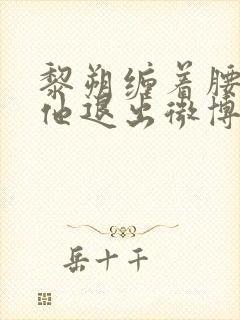 黎朔缠着腰
他退出微博
岳十千